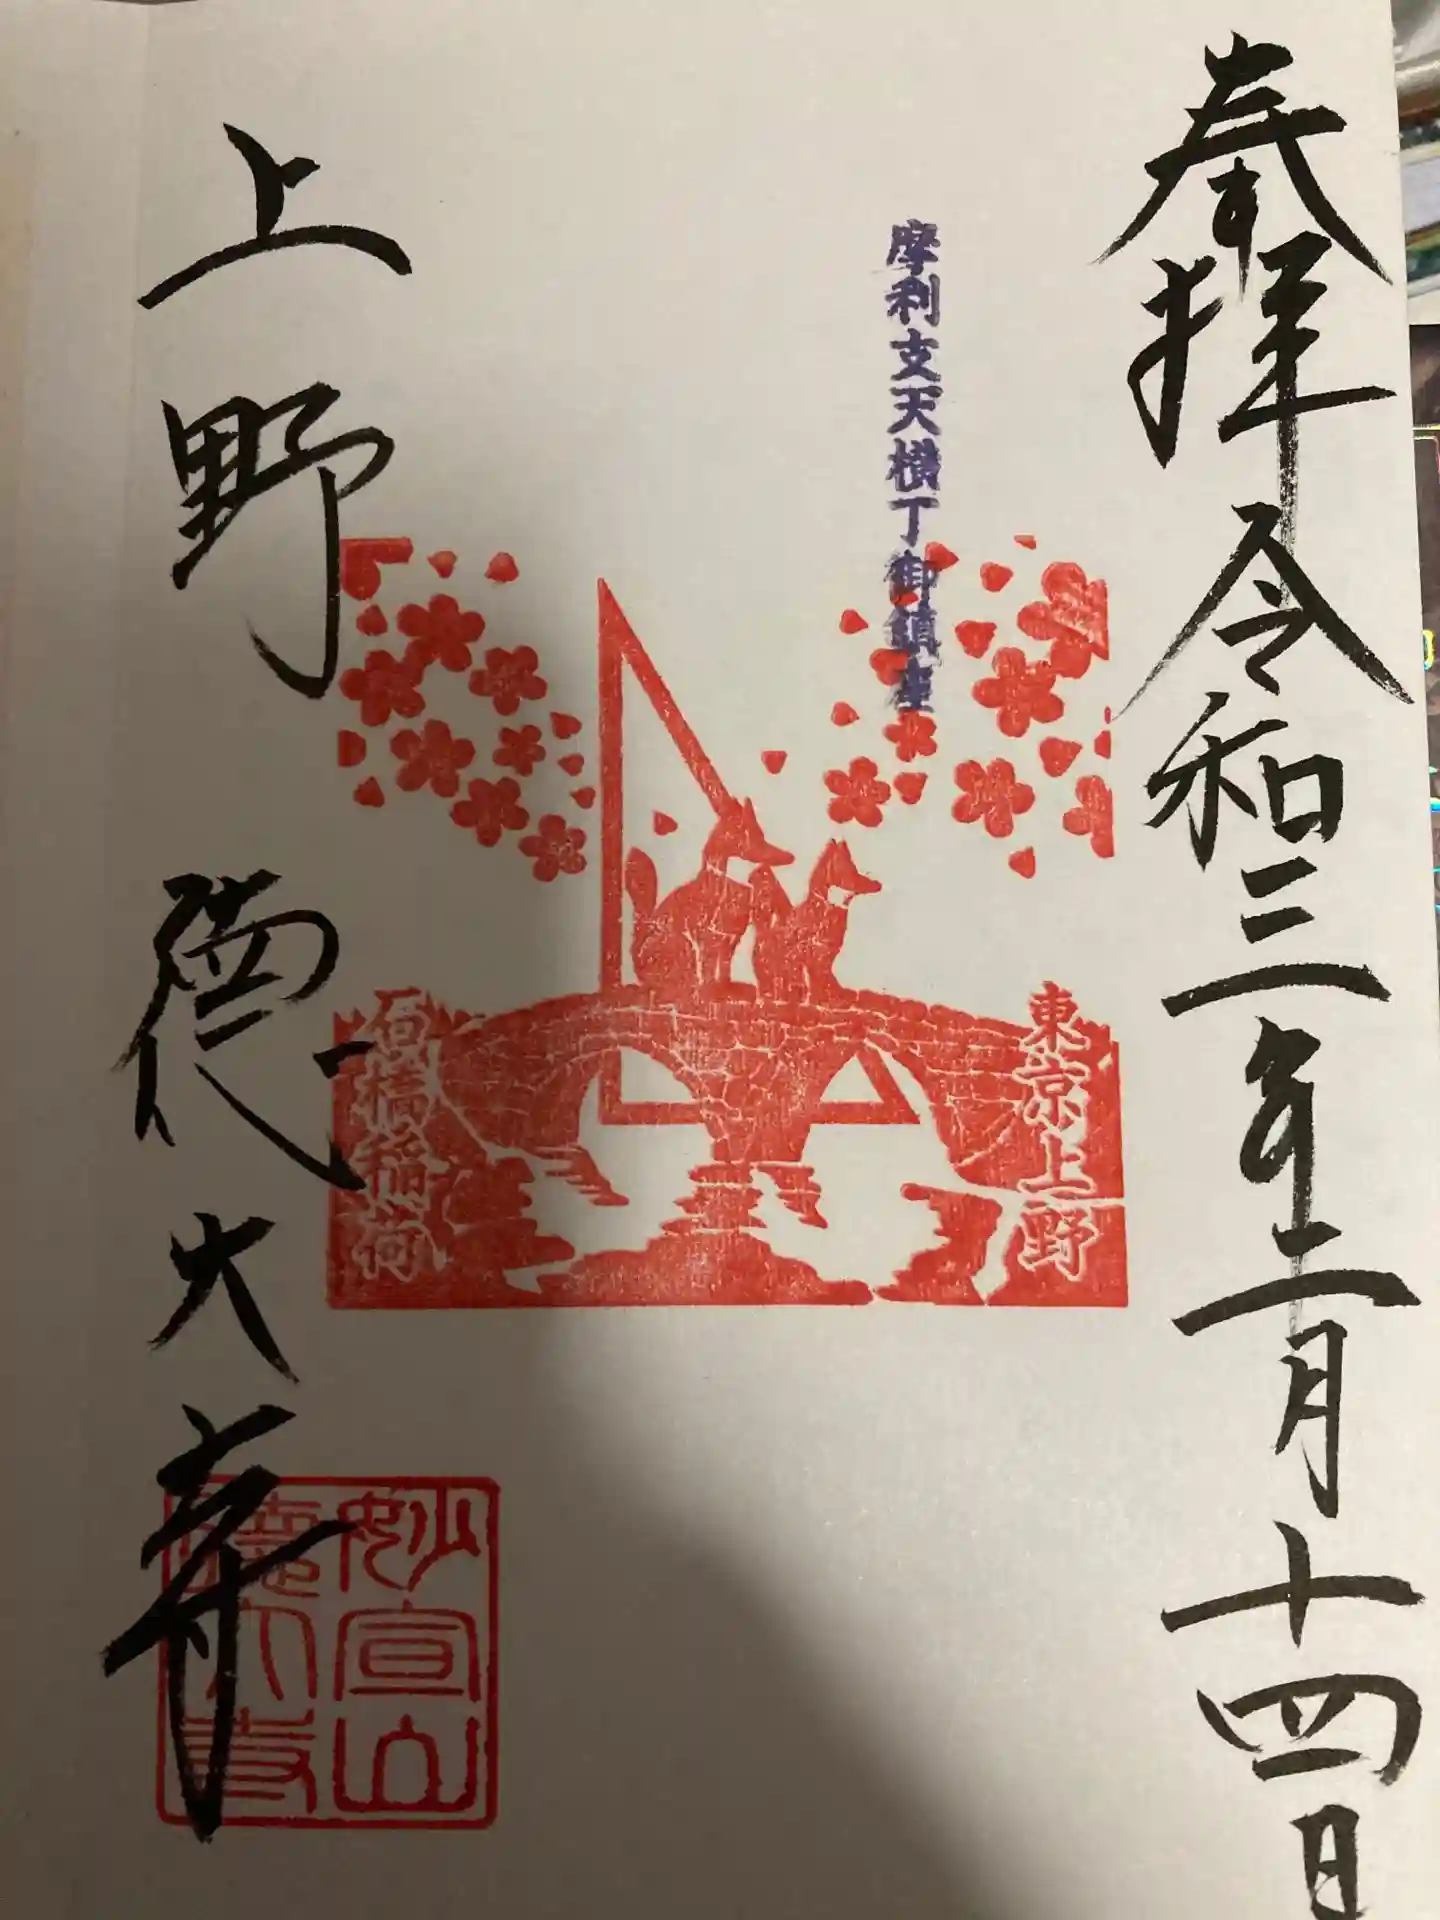 奉拝 令和三年二月十四日
摩利支天横丁御鎮座
東京上野
石橋稲荷
上野 徳大寺
妙宣山
徳大寺